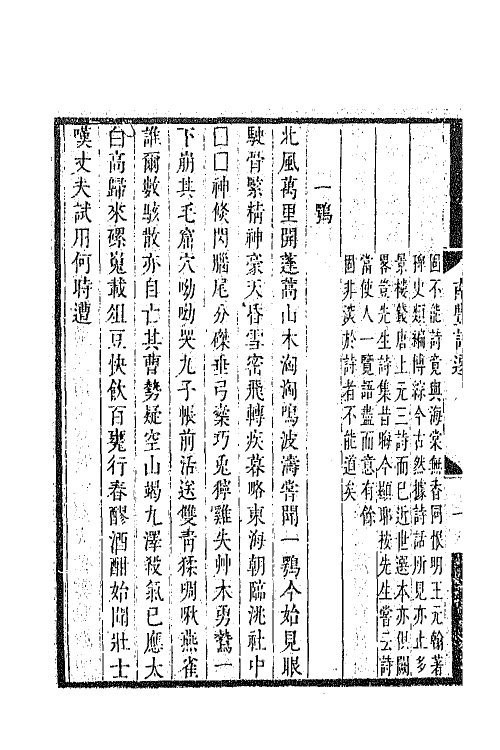 南豐詩選
一
固不能詩竟與海棠無香同恨明王元翰著
稗史類編博綜今古然據詩話所見亦止多
景樓錢唐上元三詩而已近世選本亦俱闕
畧豈先生詩集昔晦今顯耶按先生嘗云詩
當使人一覽語盡而意有餘
固非深於詩者不能道矣
一鶚
北風萬里開蓬蒿山木洶洶鳴波濤嘗聞一鶚今始見眼
駛骨緊精神豪天昏雪密飛轉疾暮略東海朝臨洮社中
囗囗神倏閃腦尾分磔垂弓櫜巧兔獰雞失艸木勇鷙一
下崩其毛窟穴呦呦哭九子帳前活送雙靑猱啁啾燕雀
誰爾數駭散亦自亡其曹勢疑空山竭九澤殺氣已應太
白高歸來磥嵬載俎豆快飲百甕行春醪酒酣始聞壯士
嘆丈夫試用何時遭